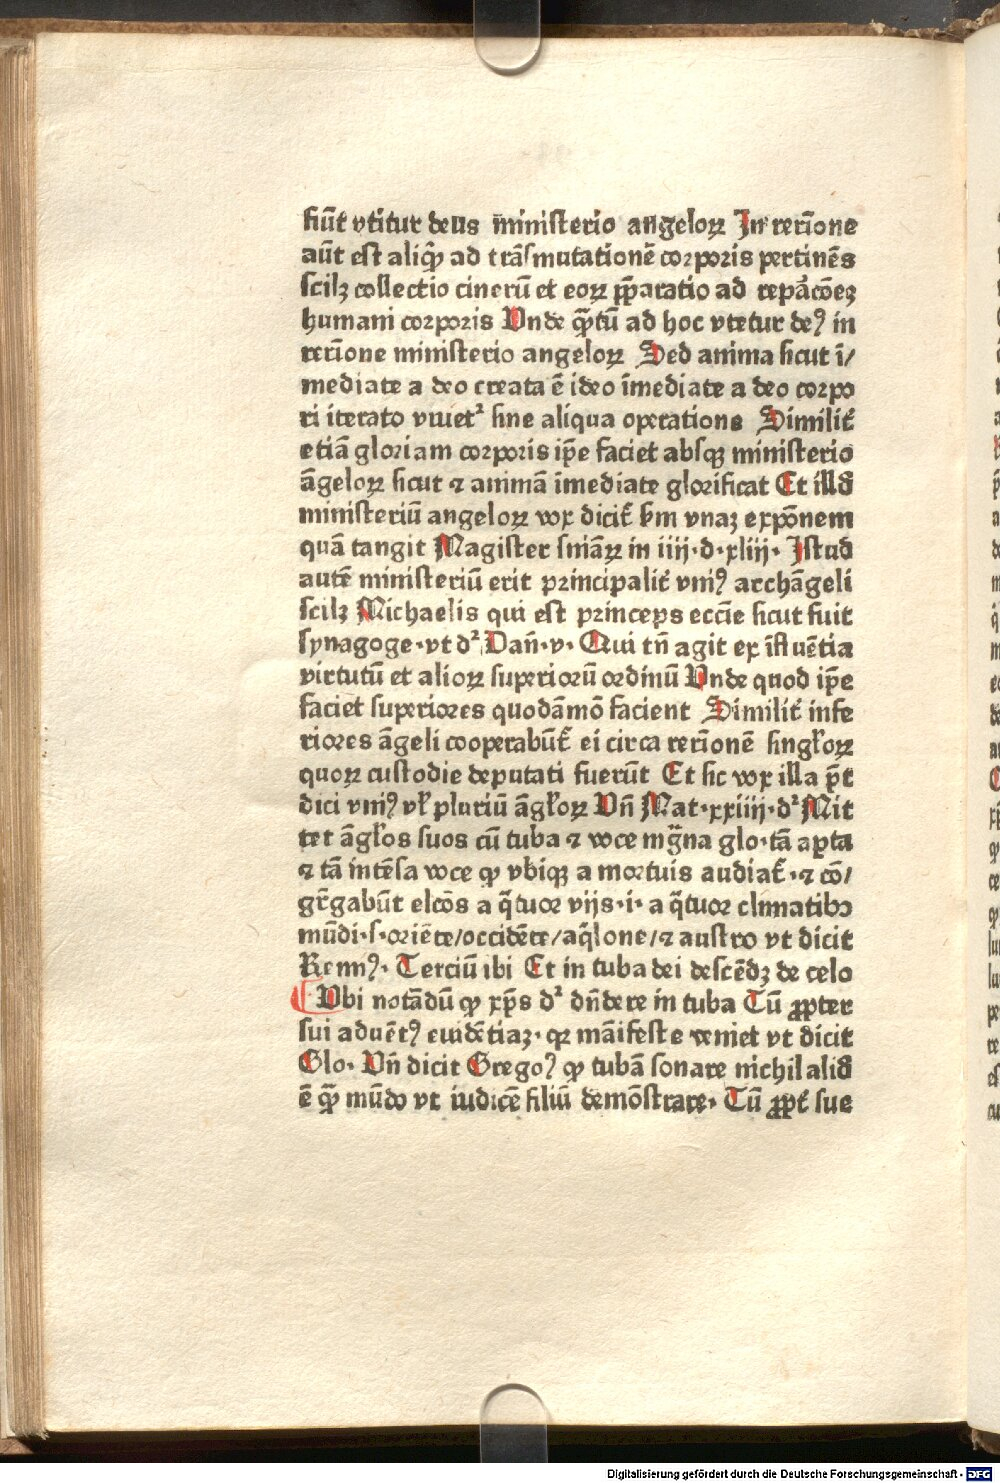 fiūt vtitur deus ministerio angeloꝝ In rerīone
aūt est aliqͥ̄ ad trāsmutationē corporis pertinēs
scilꝫ collectio cinerū et eoꝝ p̄paratio ad repācōeꝫ
humani corporis Vnde qͣ̄tū ad hoc vtetur deꝰ in
rerīone ministerio angeloꝝ Sed anima sicut ī/
mediate a deo creata ē ideo īmediate a deo corpo
ri iterato viuet² sine aliqua operatione Similit̄
etiā gloriam corporis ip̄e faciet absqꝫ ministerio
āngeloꝝ sicut ⁊ animā īmediate glorificat Et illḋ
ministeriū angeloꝝ vox dicit̄ ẜm vnaꝫ expōnem
quā tangit Magister sniāꝝ in iiij·d·xliij· Istud
autē ministeriū erit principalit̄ vniꝰ archāgeli
scilꝫ Michaelis qui est princeps ecc̄ie sicut fuit
synagoge·vt d² Dan̄·v· Qui tn̄ agit ex īfluētia
virtutū et alioꝝ superiorū ordinū Vnde quod ip̄e
faciet superiores quodāmō facient Similit̄ infe
riores āgeli cooperabūt̄ ei circa rerīonē singl̓oꝝ
quoꝝ custodie deputati fuerūt Et sic vox illa p̄t
dici vniꝰ vl̓ pluriū āgl̓oꝝ Vn̄ Mat·xxiiij·d² Mit
tet āgl̓os suos cū tuba ⁊ voce mg̈na glo·tā apta
⁊ tā intēsa voce ꝙ vbiqꝫ a mortuis audiat̄·⁊ cō/
gr̄gabūt elcōs a q̄tuor vijs·i·a q̄tuor climatibꝯ
mūdi·s·oriēte/occidēte/aq̄lone/⁊ austro vt dicit
Remiꝰ· Terciū ibi Et in tuba dei descēdꝫ de celo
Vbi notādū ꝙ xp̄s d² dn̄dere in tuba Tū ꝓpter
sui aduētꝰ euidētiaꝫ· qꝛ māifeste veniet vt dicit
Glo· Vn̄ dicit Gregoꝰ ꝙ tubā sonare nichil aliḋ
ē qͣ̄ mūdo vt iudicē filiū demōstrare· Tū ꝓpt̄ sue
Digitalisierung gefördert durch die Deutsche Forschungsgemeinschaft - DFG